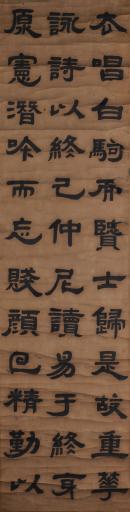 衣唱白駒而賢士歸是故重華
詠詩以終己仲尼讀易于終身
原憲潛吟而忘賤顏回精勤以